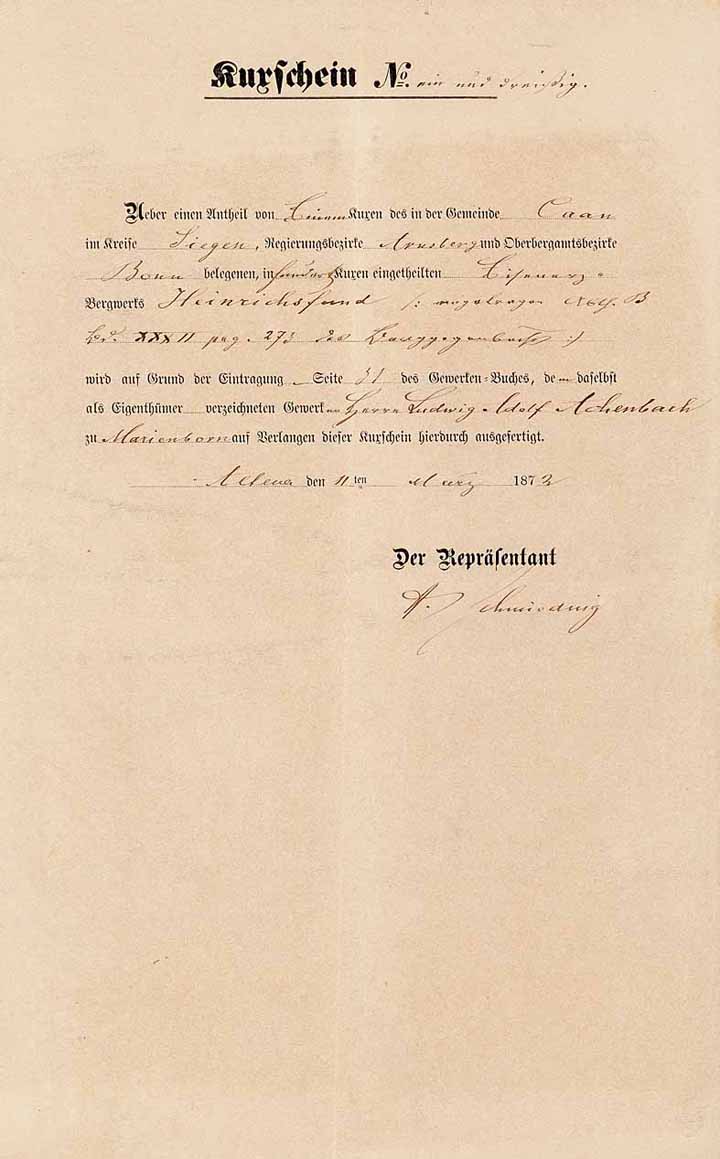 Kurschein No. ein und dreißig.
Ueber einen Antheil von Einem Kuxen des in der Gemeinde Caan
im Kreise Siegen, Regierungsbezirke Arnsberg und Oberbergamtsbezirke
Bonn belegenen, in hundert Kuxen eingetheilten Eisenerz-
Bergwerks Heinrichsfund /: eingetragen B
XXXII pag. 273 des :/
wird auf Grund der Eintragung Seite 31 des Gewerken-Buches, de m daselbst
als Eigenthümer verzeichneten Gewerken Herrn Ludwig Adolf Achenbach
zu Marienborn auf Verlangen dieser Kurschein hierdurch ausgefertigt.
Altena den 11ten März 1872
Der Repräsentant
A. Schmieding